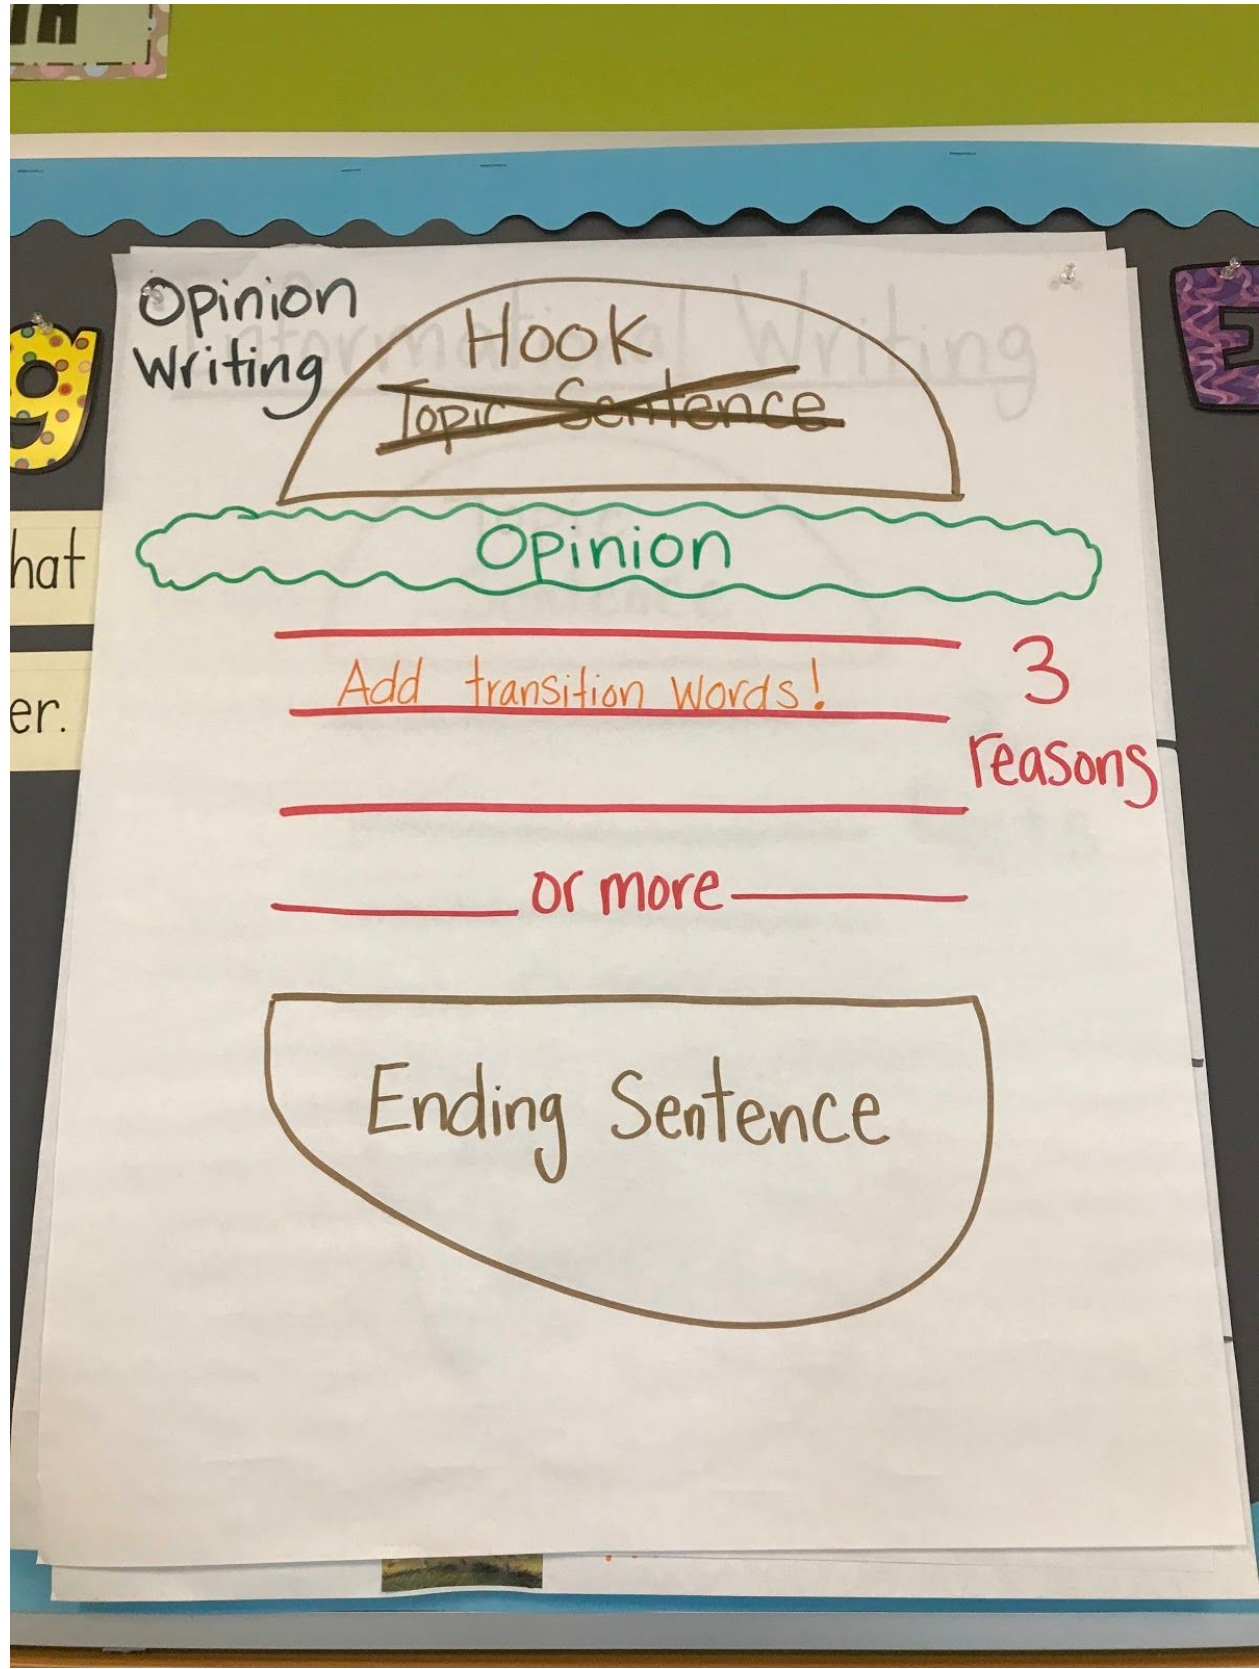 Opinion
Writing
Hook
Topic Sentence
Opinion
Add transition words!
3
reasons
or more
Ending Sentence
Informational Writing
hat
er.
g
E